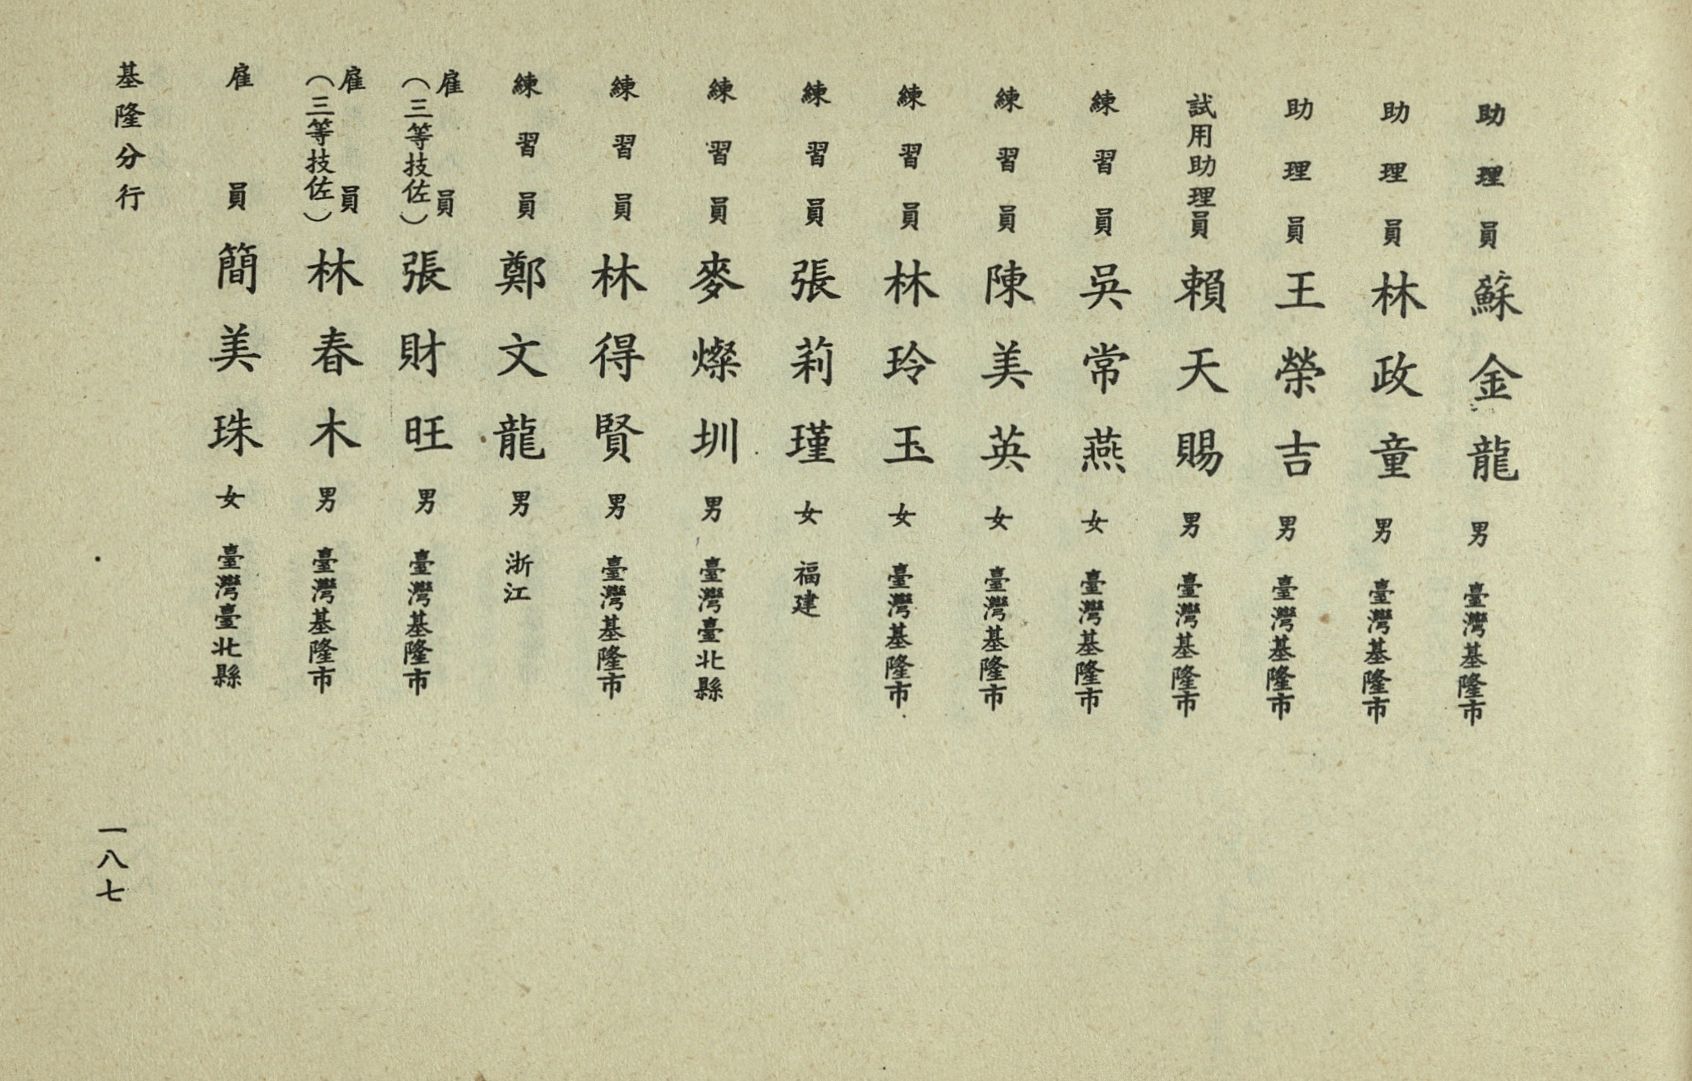 助理員 蘇金龍 男 臺灣基隆市
助理員 林政童 男 臺灣基隆市
助理員 王榮吉 男 臺灣基隆市
試用助理員 賴天賜 男 臺灣基隆市
練習員 吳常燕 女 臺灣基隆市
練習員 陳美英 女 臺灣基隆市
練習員 林玲玉 女 臺灣基隆市
練習員 張莉瑾 女 福建
練習員 麥燦圳 男 臺灣臺北縣
練習員 林得賢 男 臺灣基隆市
練習員 鄭文龍 男 浙江
雇員（三等技佐） 張財旺 男 臺灣基隆市
雇員（三等技佐） 林春木 男 臺灣基隆市
雇員 簡美珠 女 臺灣臺北縣
基隆分行
一八七